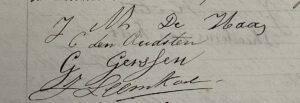 J M De Haas
C den Oudsten
G Gerssen